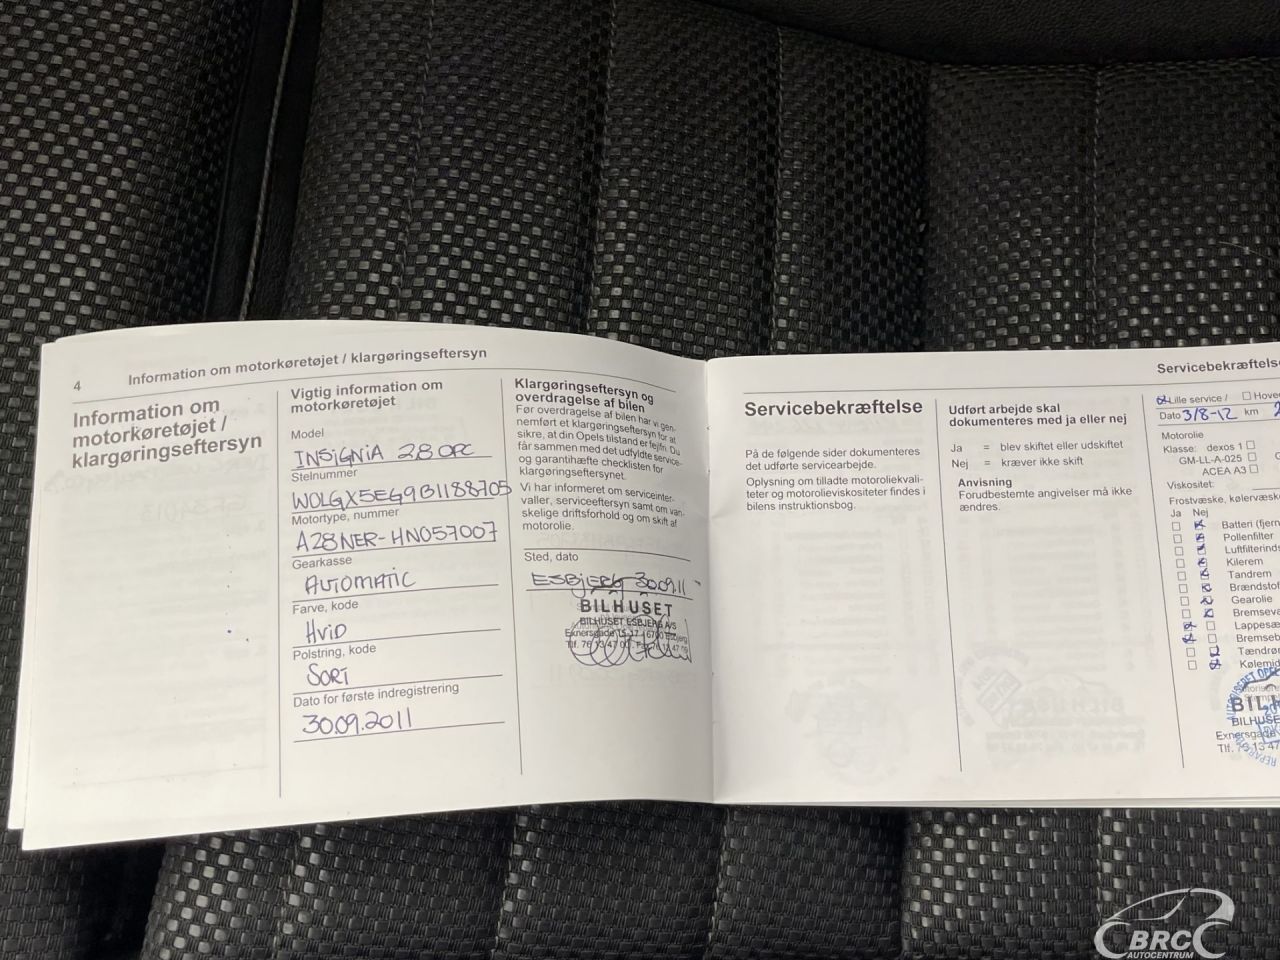 4 Information om motorkøretøjet / klargøringseftersyn
Information om
motorkøretøjet /
klargøringseftersyn
Vigtig information om
motorkøretøjet
Model
INSIGNIA 2.8 OPC
Stelnummer
W0LGX5EG9B1188705
Motortype, nummer
A28NER-HN057007
Gearkasse
AUTOMATIC
Farve, kode
HVID
Polstring, kode
SORT
Dato for første indregistrering
30.09.2011
Klargøringseftersyn og
overdragelse af bilen
Før overdragelse af bilen har vi gen-
nemført et klargøringseftersyn for at
sikre, at din Opels tilstand er fejlfri. Du
får sammen med det udfyldte service-
og garantihæfte checklisten for
klargøringseftersynet.
Vi har informeret om serviceinter-
valler, serviceeftersyn samt om van-
skelige driftsforhold og om skift af
motorolie.
Sted, dato
ESBJERG 30.09.11
BILHUSET
BILHUSET ESBJERG A/S
Exnersgade 15-17 / 6700 Esbjerg
Tlf. 76 13 47 00
Servicebekræftelse
Servicebekræftelse
På de følgende sider dokumenteres
det udførte servicearbejde.
Oplysning om tilladte motoroliekvali-
teter og motorolieviskositeter findes i
bilens instruktionsbog.
Udført arbejde skal
dokumenteres med ja eller nej
Ja = blev skiftet eller udskiftet
Nej = kræver ikke skift
Anvisning
Forudbestemte angivelser må ikke
ændres.
Lille service / Hove
Dato 3/8-12 km 2
Motorolie
Klasse: dexos 1
GM-LL-A-025
ACEA A3
Viskositet:
Frostvæske, kølervæske
Ja Nej
Batteri (fjern
Pollenfilter
Luftfilterinds
Kilerem
Tandrem
Brændstof
Gearolie
Bremsevæ
Lappesæ
Bremseb
Tændrør
Kølemid
BILH
BILHUSE
Exnersgade
Tlf. 76 13 47
BRC
AUTOCENTRUM